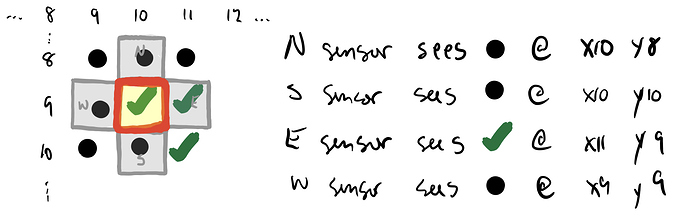 ... 8 9 10 11 12 ...
⋮
8 N
9 W E
10 S
⋮
N sensor sees ● @ x10 y8
S sensor sees ● @ x10 y10
E sensor sees ✔ @ x11 y9
W sensor sees ● @ x9 y9